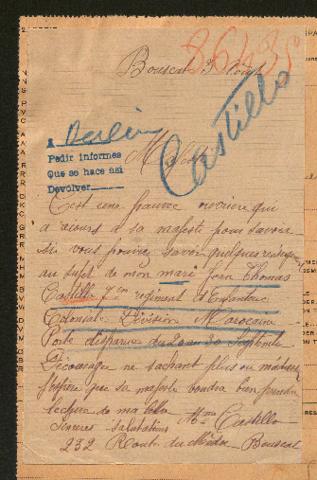 36435
Bouscat 3 Août
Castillo
A Berlin
Pedir informes
Que se hace asi
Devolver
Majesté
C'est une pauvre ouvrière qui
a recours à sa majesté pour savoir
si vous pouvez savoir quelques
au sujet de mon mari Jean Thomas
Castillo 7em regiment d'Infanterie
Coloniale Division Marocaine
Porté disparu du 20 au 30 Septembre
ne sachant plus ou
j'espere que sa majesté voudra bien prendre
lecture de ma lettre
Sinceres salutations Mme Castillo
232 Route du Médoc Bouscat